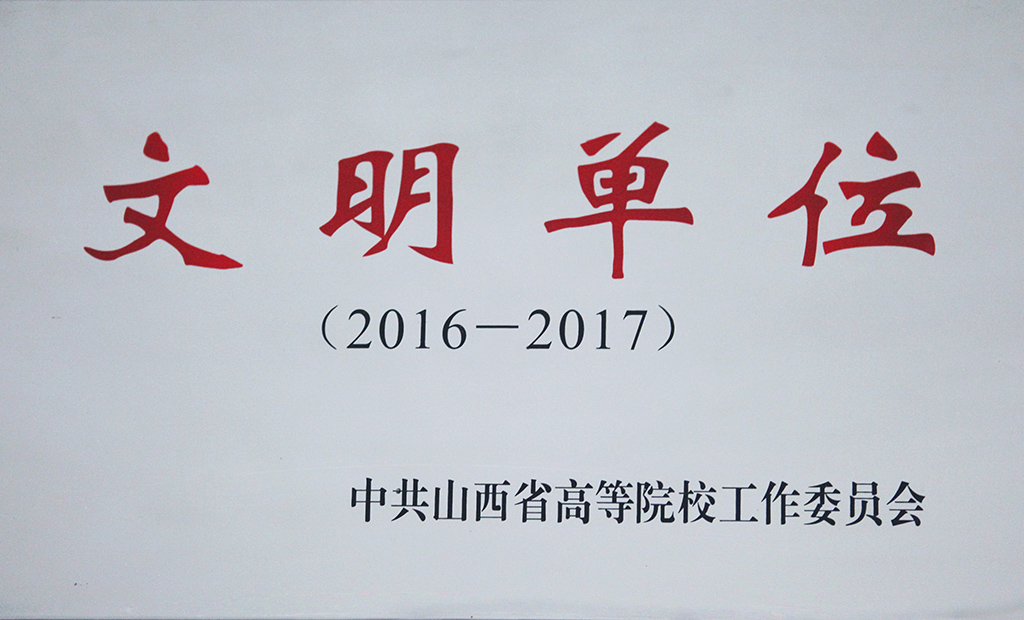 文明单位
（2016－2017）
中共山西省高等院校工作委员会